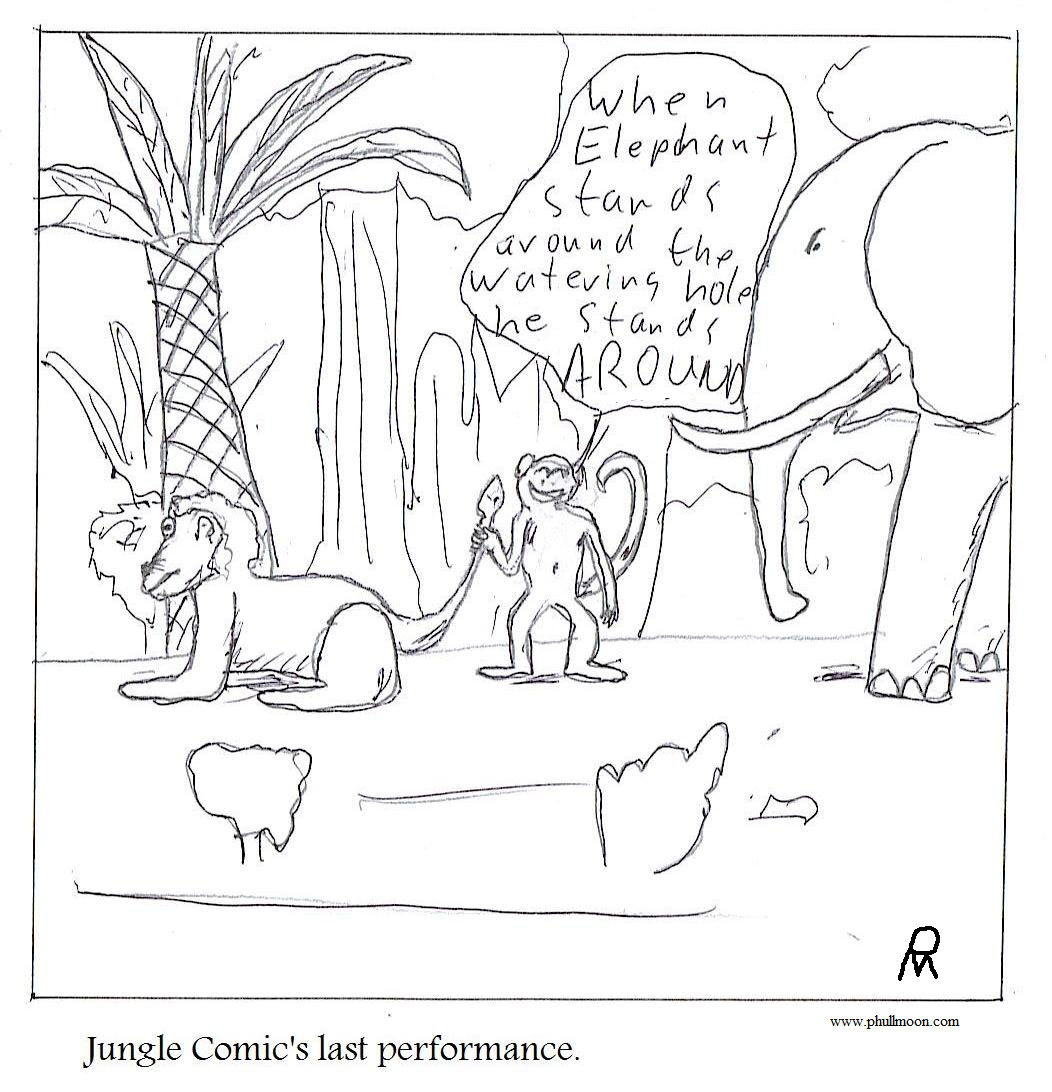 When
Elephant
stands
around the
watering hole
he stands
AROUND
www.phullmoon.com
Jungle Comic's last performance.